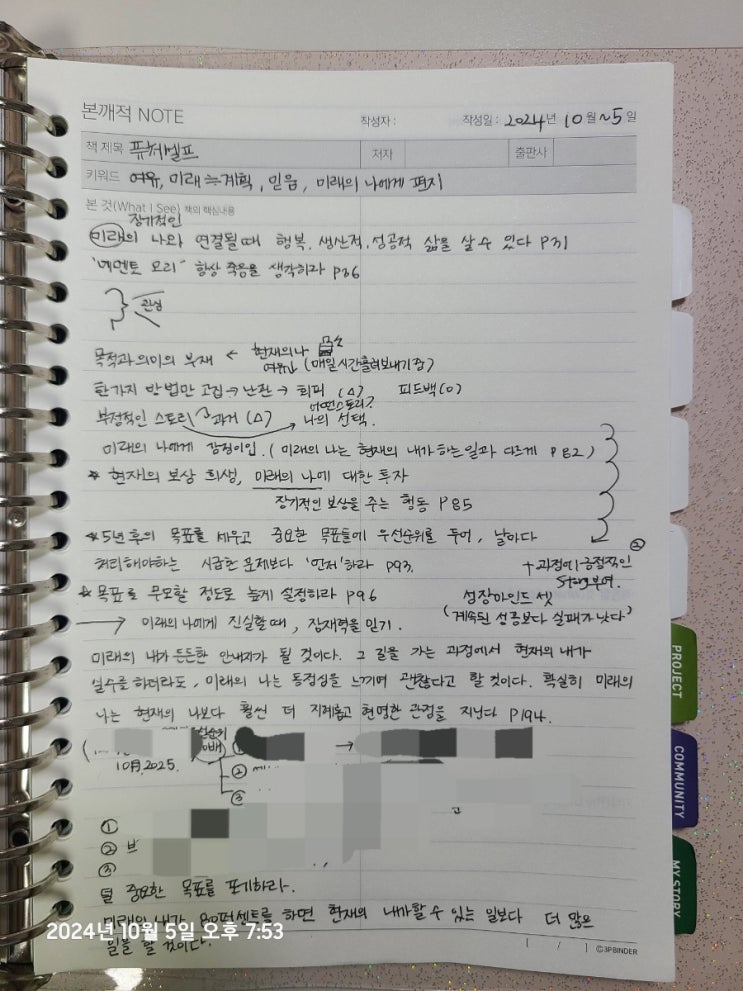 본깨적 NOTE
작성자 :
작성일 : 2024년 10월 ~5일
책 제목 퓨처셀프
저자
출판사
키워드 여유, 미래≒계획, 믿음, 미래의 나에게 편지
본 것(What I See) 책의 핵심내용
장기적인
미래의 나와 연결될때 행복. 생산적. 성공적 삶을 살 수 있다 P31
'메멘토 모리' 항상 죽음을 생각하라 P36
관심
목적과 의미의 부재 ← 현재의 나
여유 (매일 시간흘려보내기 중)
한가지 방법만 고집 → 난관 → 회피 (△) 피드백(○)
어떤스토리?
부정적인 스토리 과거 (△) 나의 선택.
미래의 나에게 감정이입. (미래의 나는 현재의 내가 하는 일과 다르게 P82)
* 현재의 보상 희생, 미래의 나에 대한 투자
장기적인 보상을 주는 행동 P85
*5년 후의 목표를 세우고 중요한 목표들에 우선순위를 두어, 날마다
처리해야하는 시급한 문제보다 '먼저'하라 P93.
②
+ 과정에 긍정적인
Story부여.
* 목표를 무모할 정도로 높게 설정하라 P96
성장마인드셋
(계속된 성공보다 실패가 낫다)
→ 미래의 나에게 진실할 때, 잠재력을 믿기.
미래의 내가 든든한 안내자가 될 것이다. 그 길을 가는 과정에서 현재의 내가
실수를 하더라도, 미래의 나는 동정심을 느끼며 괜찮다고 할 것이다. 확실히 미래의
나는 현재의 나보다 훨씬 더 지혜롭고 현명한 관점을 지닌다 P194.
10月.2025.
①
→
②
③
①
② 브
③
고
덜 중요한 목표를 포기하라.
미래의 내가 80퍼센트를 하면 현재의 내가 할 수 있는 일보다 더 많은
일을 할 것이다.
2024년 10월 5일 오후 7:53
[ / ] ©3PBINDER
PROJECT
COMMUNITY
MY STORY